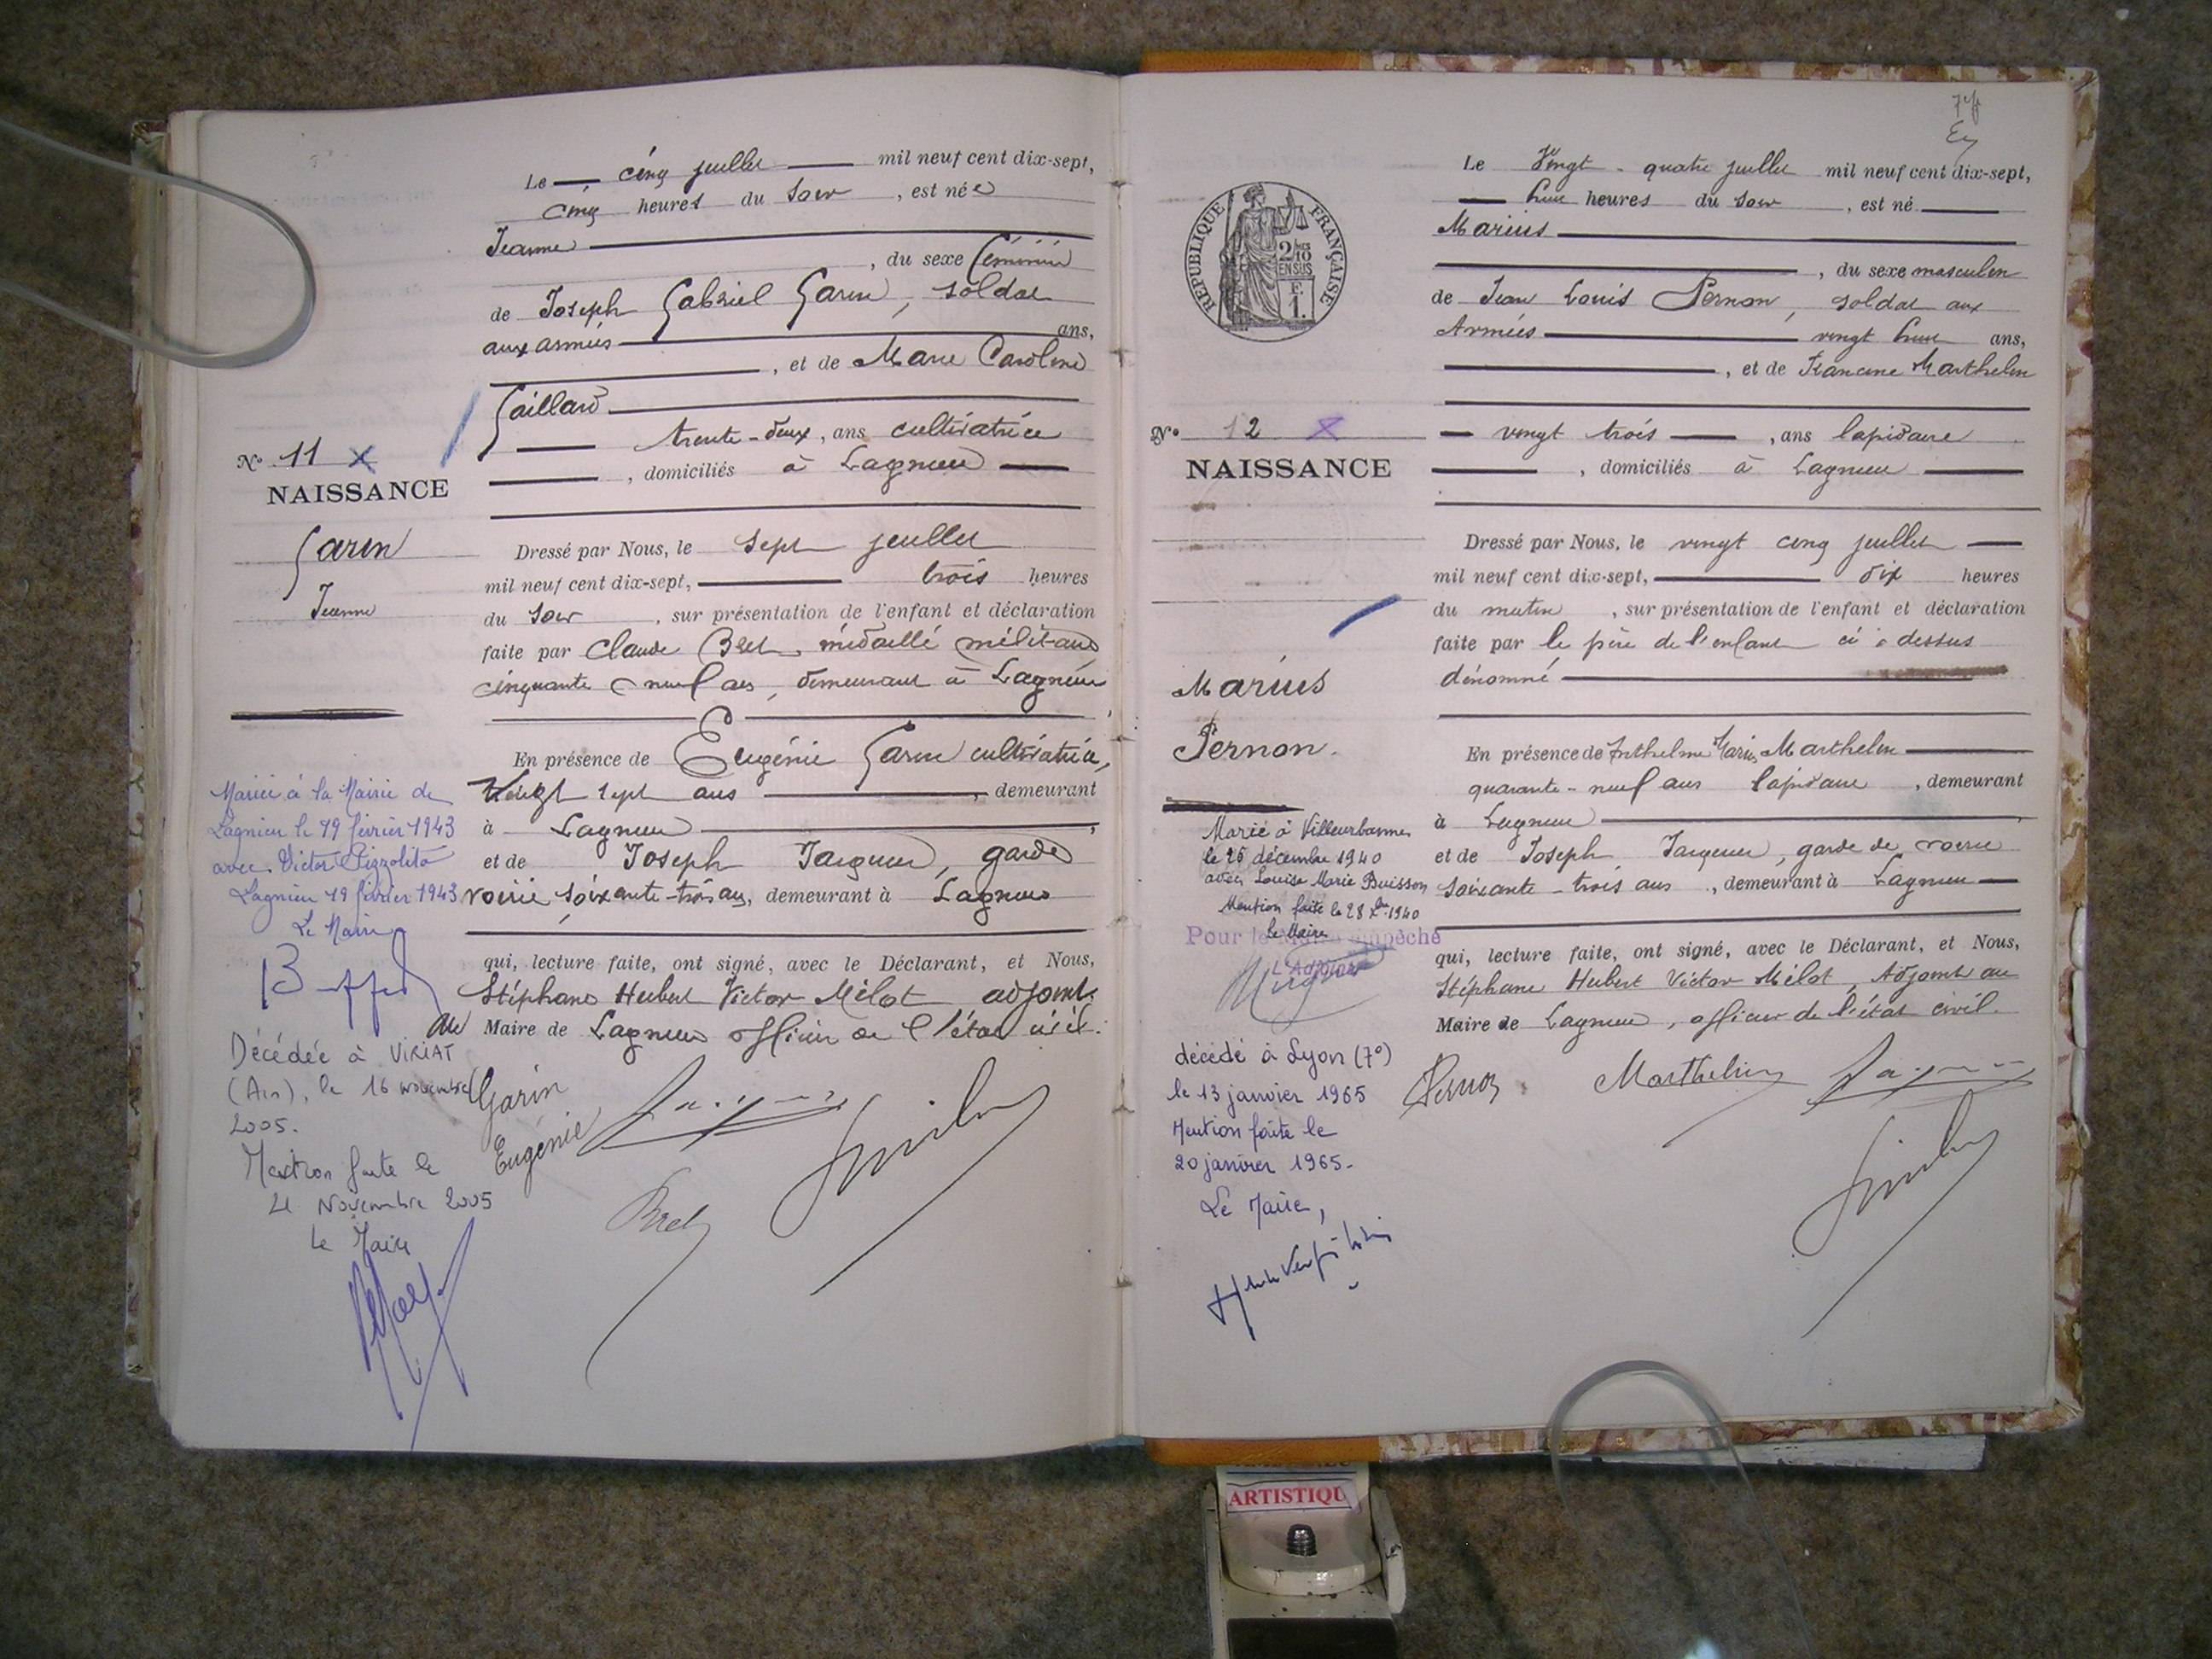 Le cinq juillet mil neuf cent dix-sept,
cinq heures du soir , est née
Jeanne
, du sexe féminin
de Joseph Gabriel Garin, soldat
aux armées ans,
, et de Marie Caroline
Gaillard
trente-deux , ans cultivatrice
, domiciliés à Lagnieu
N° 11 X
NAISSANCE
Garin
Jeanne
Dressé par Nous, le sept juillet
mil neuf cent dix-sept, trois heures
du soir , sur présentation de l'enfant et déclaration
faite par Claude Bret, médaillé militaire
cinquante neuf ans, demeurant à Lagnieu
En présence de Eugénie Garin cultivatrice,
vingt sept ans , demeurant
à Lagnieu
et de Joseph garde
voirie soixante-trois ans, demeurant à Lagnieu
qui, lecture faite, ont signé, avec le Déclarant, et Nous,
Stéphane Hubert Victor Mélot adjoint
au Maire de Lagnieu officier de l'état civil.
Mariée à la Mairie de
Lagnieu le 19 février 1943
avec Victor Pizzolito
Lagnieu 19 février 1943
Le Maire
Décédée à VIRIAT
(Ain), le 16 novembre
2005.
Mention faite le
21 Novembre 2005
Le Maire
Garin
Eugénie
Bret
Le Vingt-quatre juillet mil neuf cent dix-sept,
huit heures du soir , est né
Marius
, du sexe masculin
de Jean Louis Pernon, soldat aux
Armées vingt huit ans,
, et de Francine Marthelin
vingt trois , ans lapidaire
, domiciliés à Lagnieu
REPUBLIQUE FRANÇAISE
2/10
EN SUS
F.
1.
N° 12 X
NAISSANCE
Marius
Pernon.
Dressé par Nous, le vingt cinq juillet
mil neuf cent dix-sept, dix heures
du matin , sur présentation de l'enfant et déclaration
faite par le père de l'enfant ci-dessus
dénommé
En présence de Anthelme Marius Marthelin
quarante-neuf ans lapidaire , demeurant
à Lagnieu
et de Joseph garde de voirie
soixante-trois ans , demeurant à Lagnieu
qui, lecture faite, ont signé, avec le Déclarant, et Nous,
Stéphane Hubert Victor Mélot, Adjoint au
Maire de Lagnieu, officier de l'état civil.
Marié à Villeurbanne
le 26 décembre 1940
avec Louise Marie Buisson
Mention faite le 28 Xbre 1940
le Maire
Pour le Maire empêché
L'Adjoint
décédé à Lyon (7°)
le 13 janvier 1965
Mention faite le
20 janvier 1965.
Le Maire,
Pernon Marthelin
ARTISTIQU